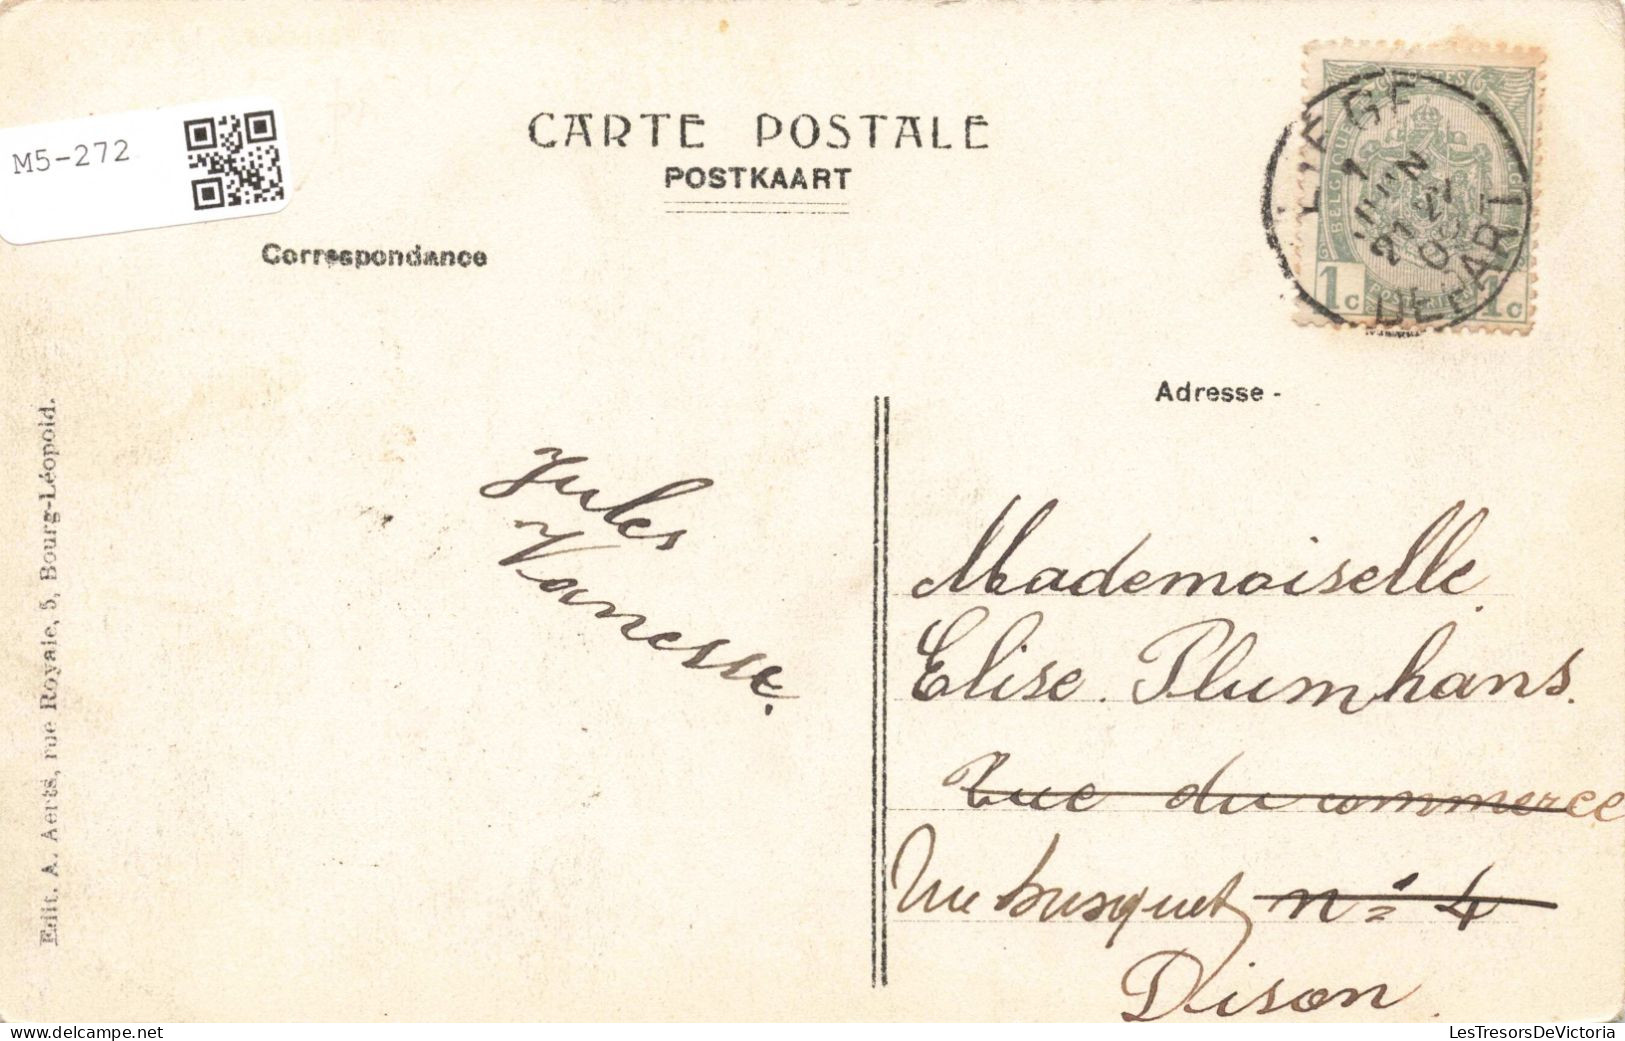 CARTE POSTALE
POSTKAART
M5-272
Correspondance
LIEGE
1
JUIN
21
DEPART
BELGIQUE
1c 1c
Adresse -
Edit. A. Aerts, rue Royale, 5, Bourg-Léopold.
Jules
Vanesse.
Mademoiselle
Elise Plumhans.
Rue du commerce
Rue busquet n° 4
Dison
delcampe.net
LesTresorsDeVictoria